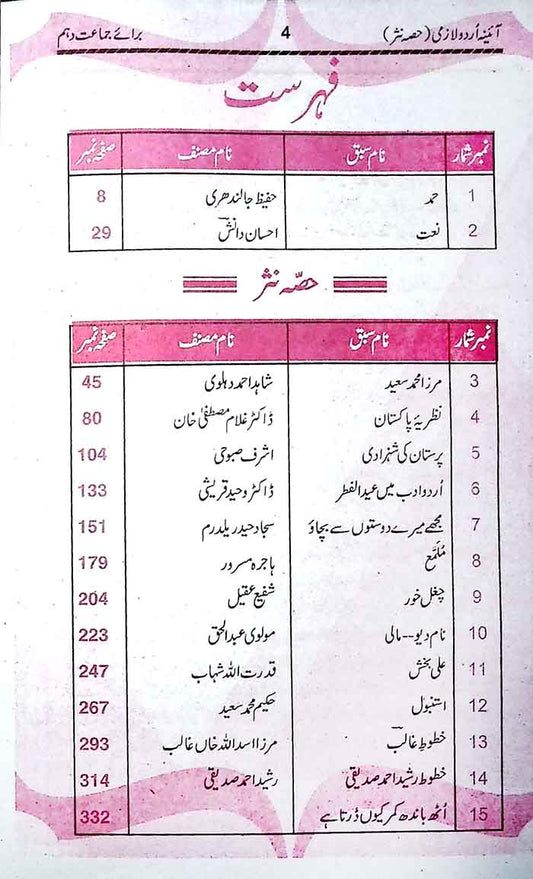 آئینہ اُردو لازمی (حصہ نثر) 4 برائے جماعت دہم
فہرست
نمبر شمار نام سبق نام مصنف صفحہ نمبر
1 حمد حفیظ جالندھری 8
2 نعت احسان دانشؔ 29
حصّہ نثر
نمبر شمار نام سبق نام مصنف صفحہ نمبر
3 مرزا محمد سعید شاہد احمد دہلوی 45
4 نظریۂ پاکستان ڈاکٹر غلام مصطفیٰ خان 80
5 پرستان کی شہزادی اشرف صبوحی 104
6 اُردو ادب میں عید الفطر ڈاکٹر وحید قریشی 133
7 مجھے میرے دوستوں سے بچاؤ سجاد حیدر یلدرم 151
8 مُلمّع ہاجرہ مسرور 179
9 چغل خور شفیع عقیل 204
10 نام دیو--مالی مولوی عبدالحق 223
11 علی بخش قدرت اللہ شہاب 247
12 استنبول حکیم محمد سعید 267
13 خطوطِ غالبؔ مرزا اسد اللہ خاں غالب 293
14 خطوط رشید احمد صدیقی رشید احمد صدیقی 314
15 اُٹھ باندھ کر کیوں ڈرتا ہے 332